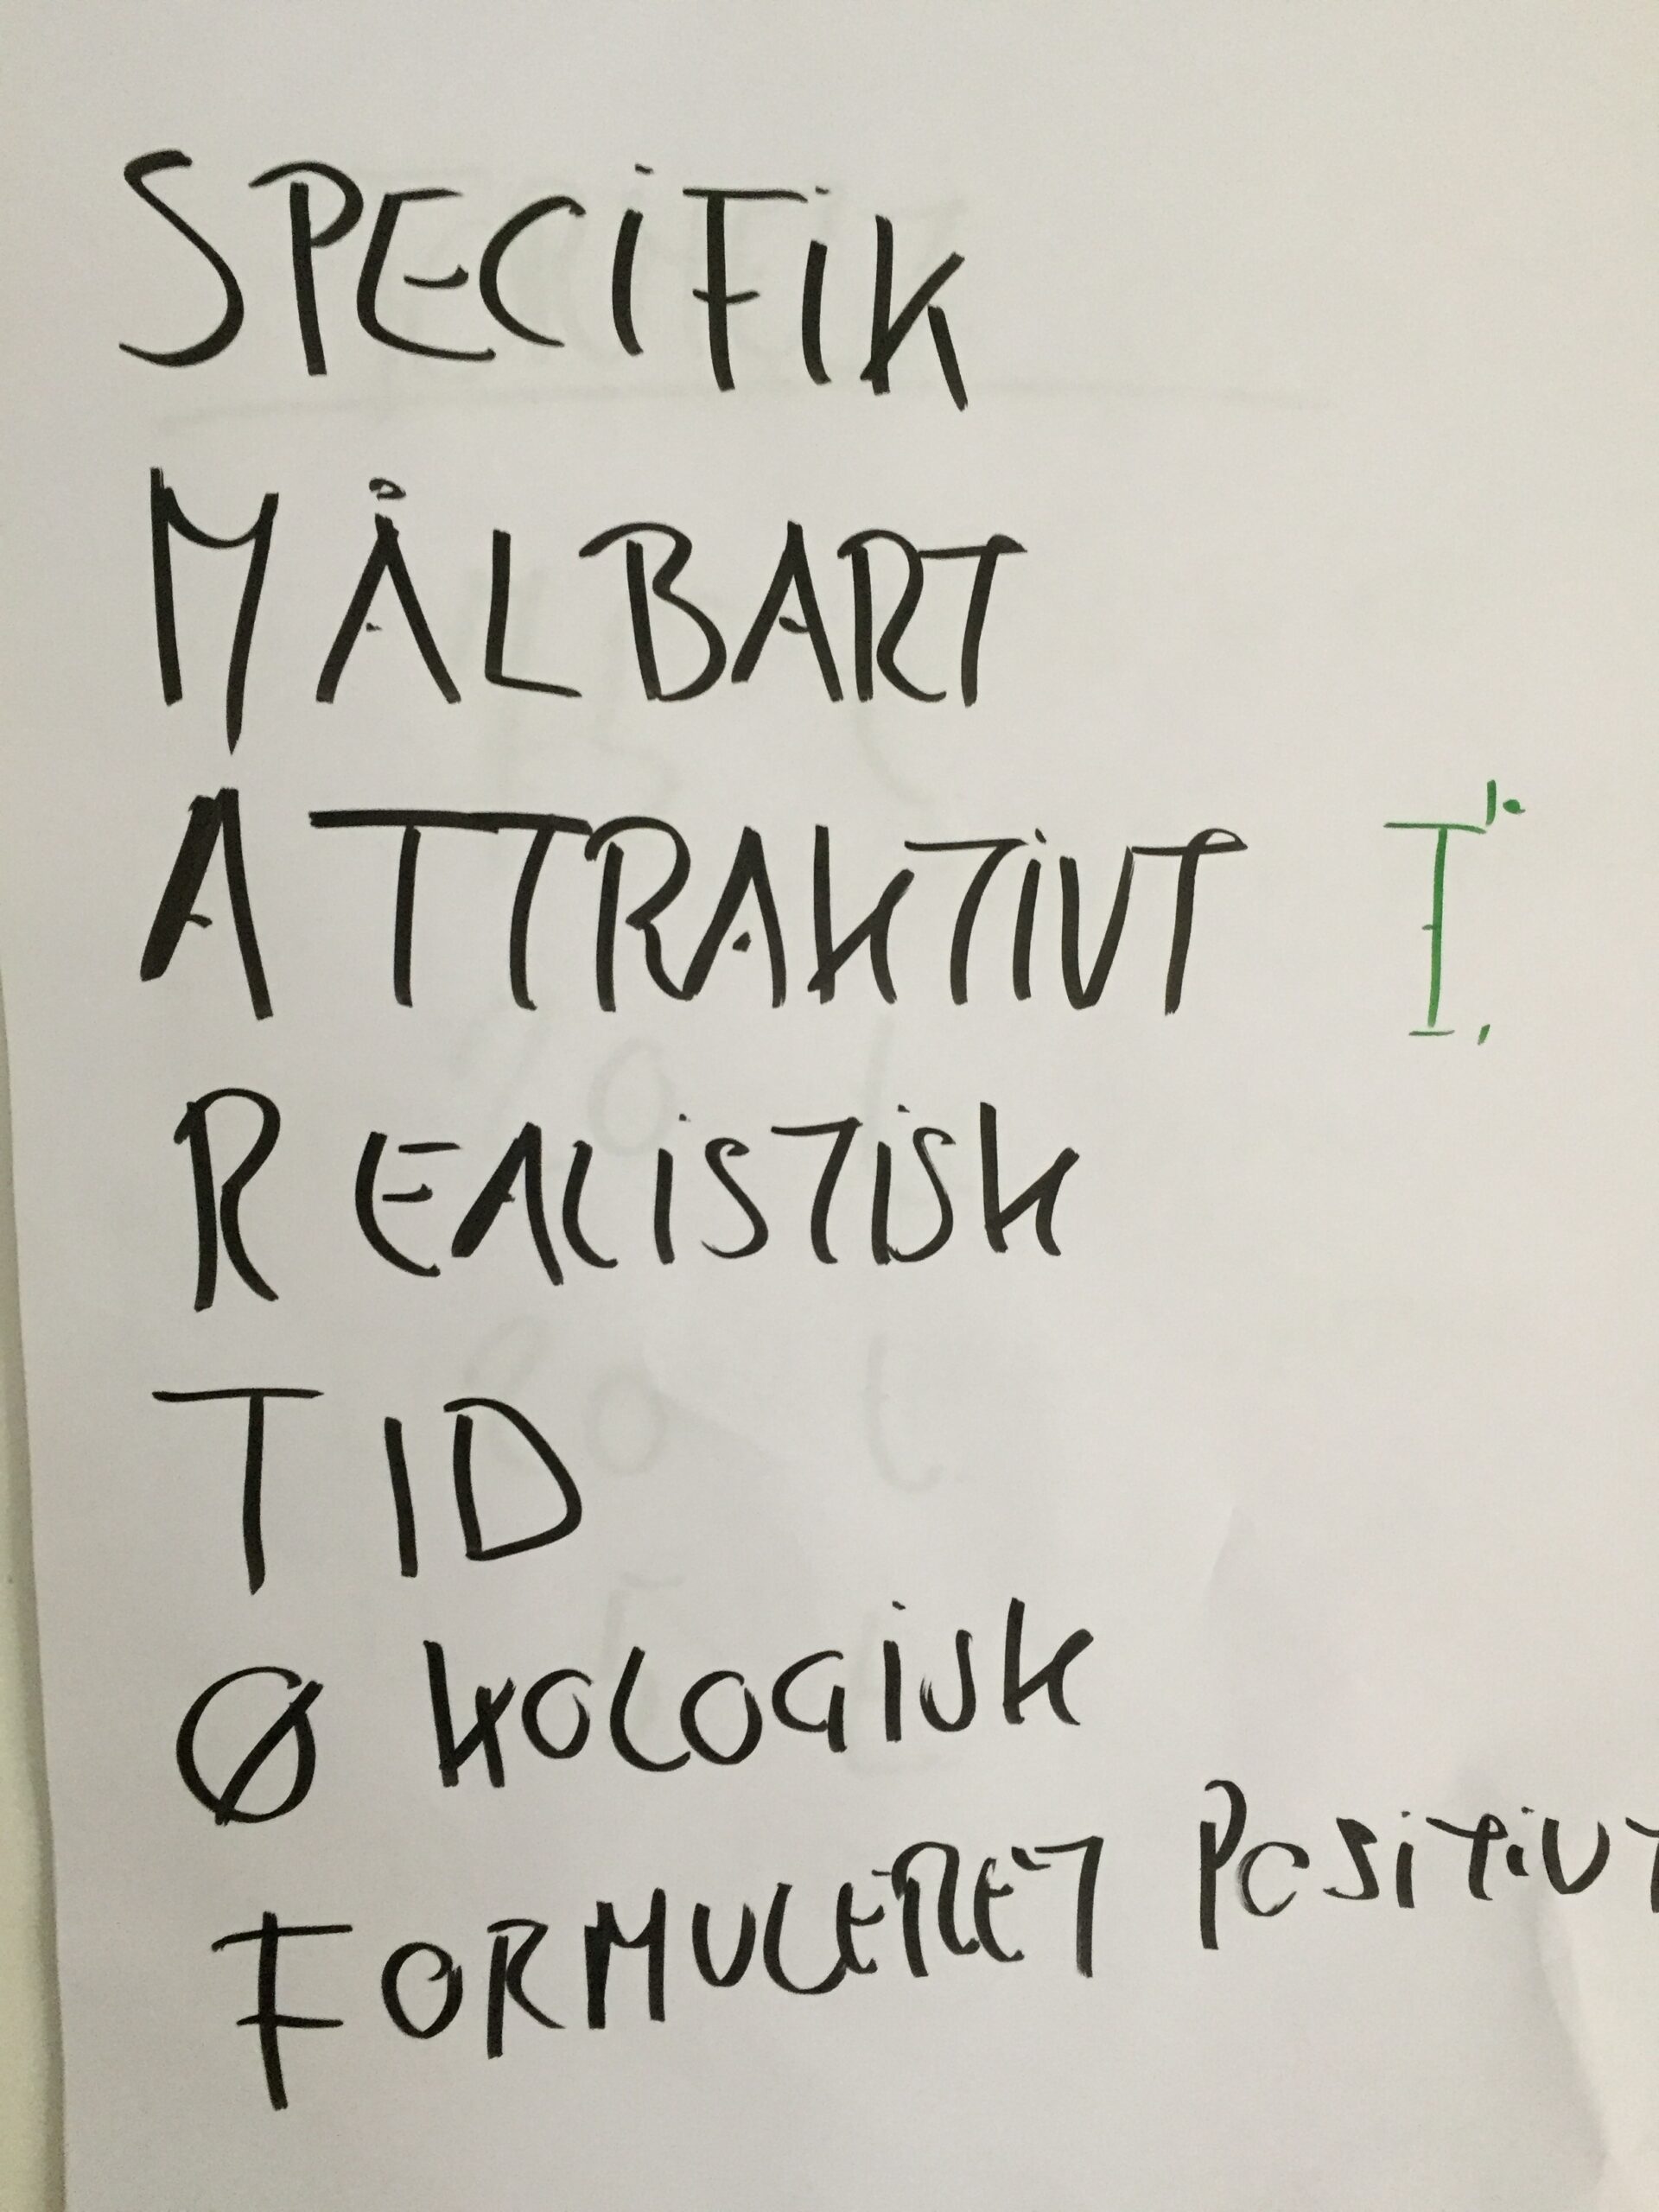 SPECIFIK
MÅLBART
ATTRAKTIVT I
REALISTISK
TID
ØKOLOGISK
FORMULERET POSITIVT